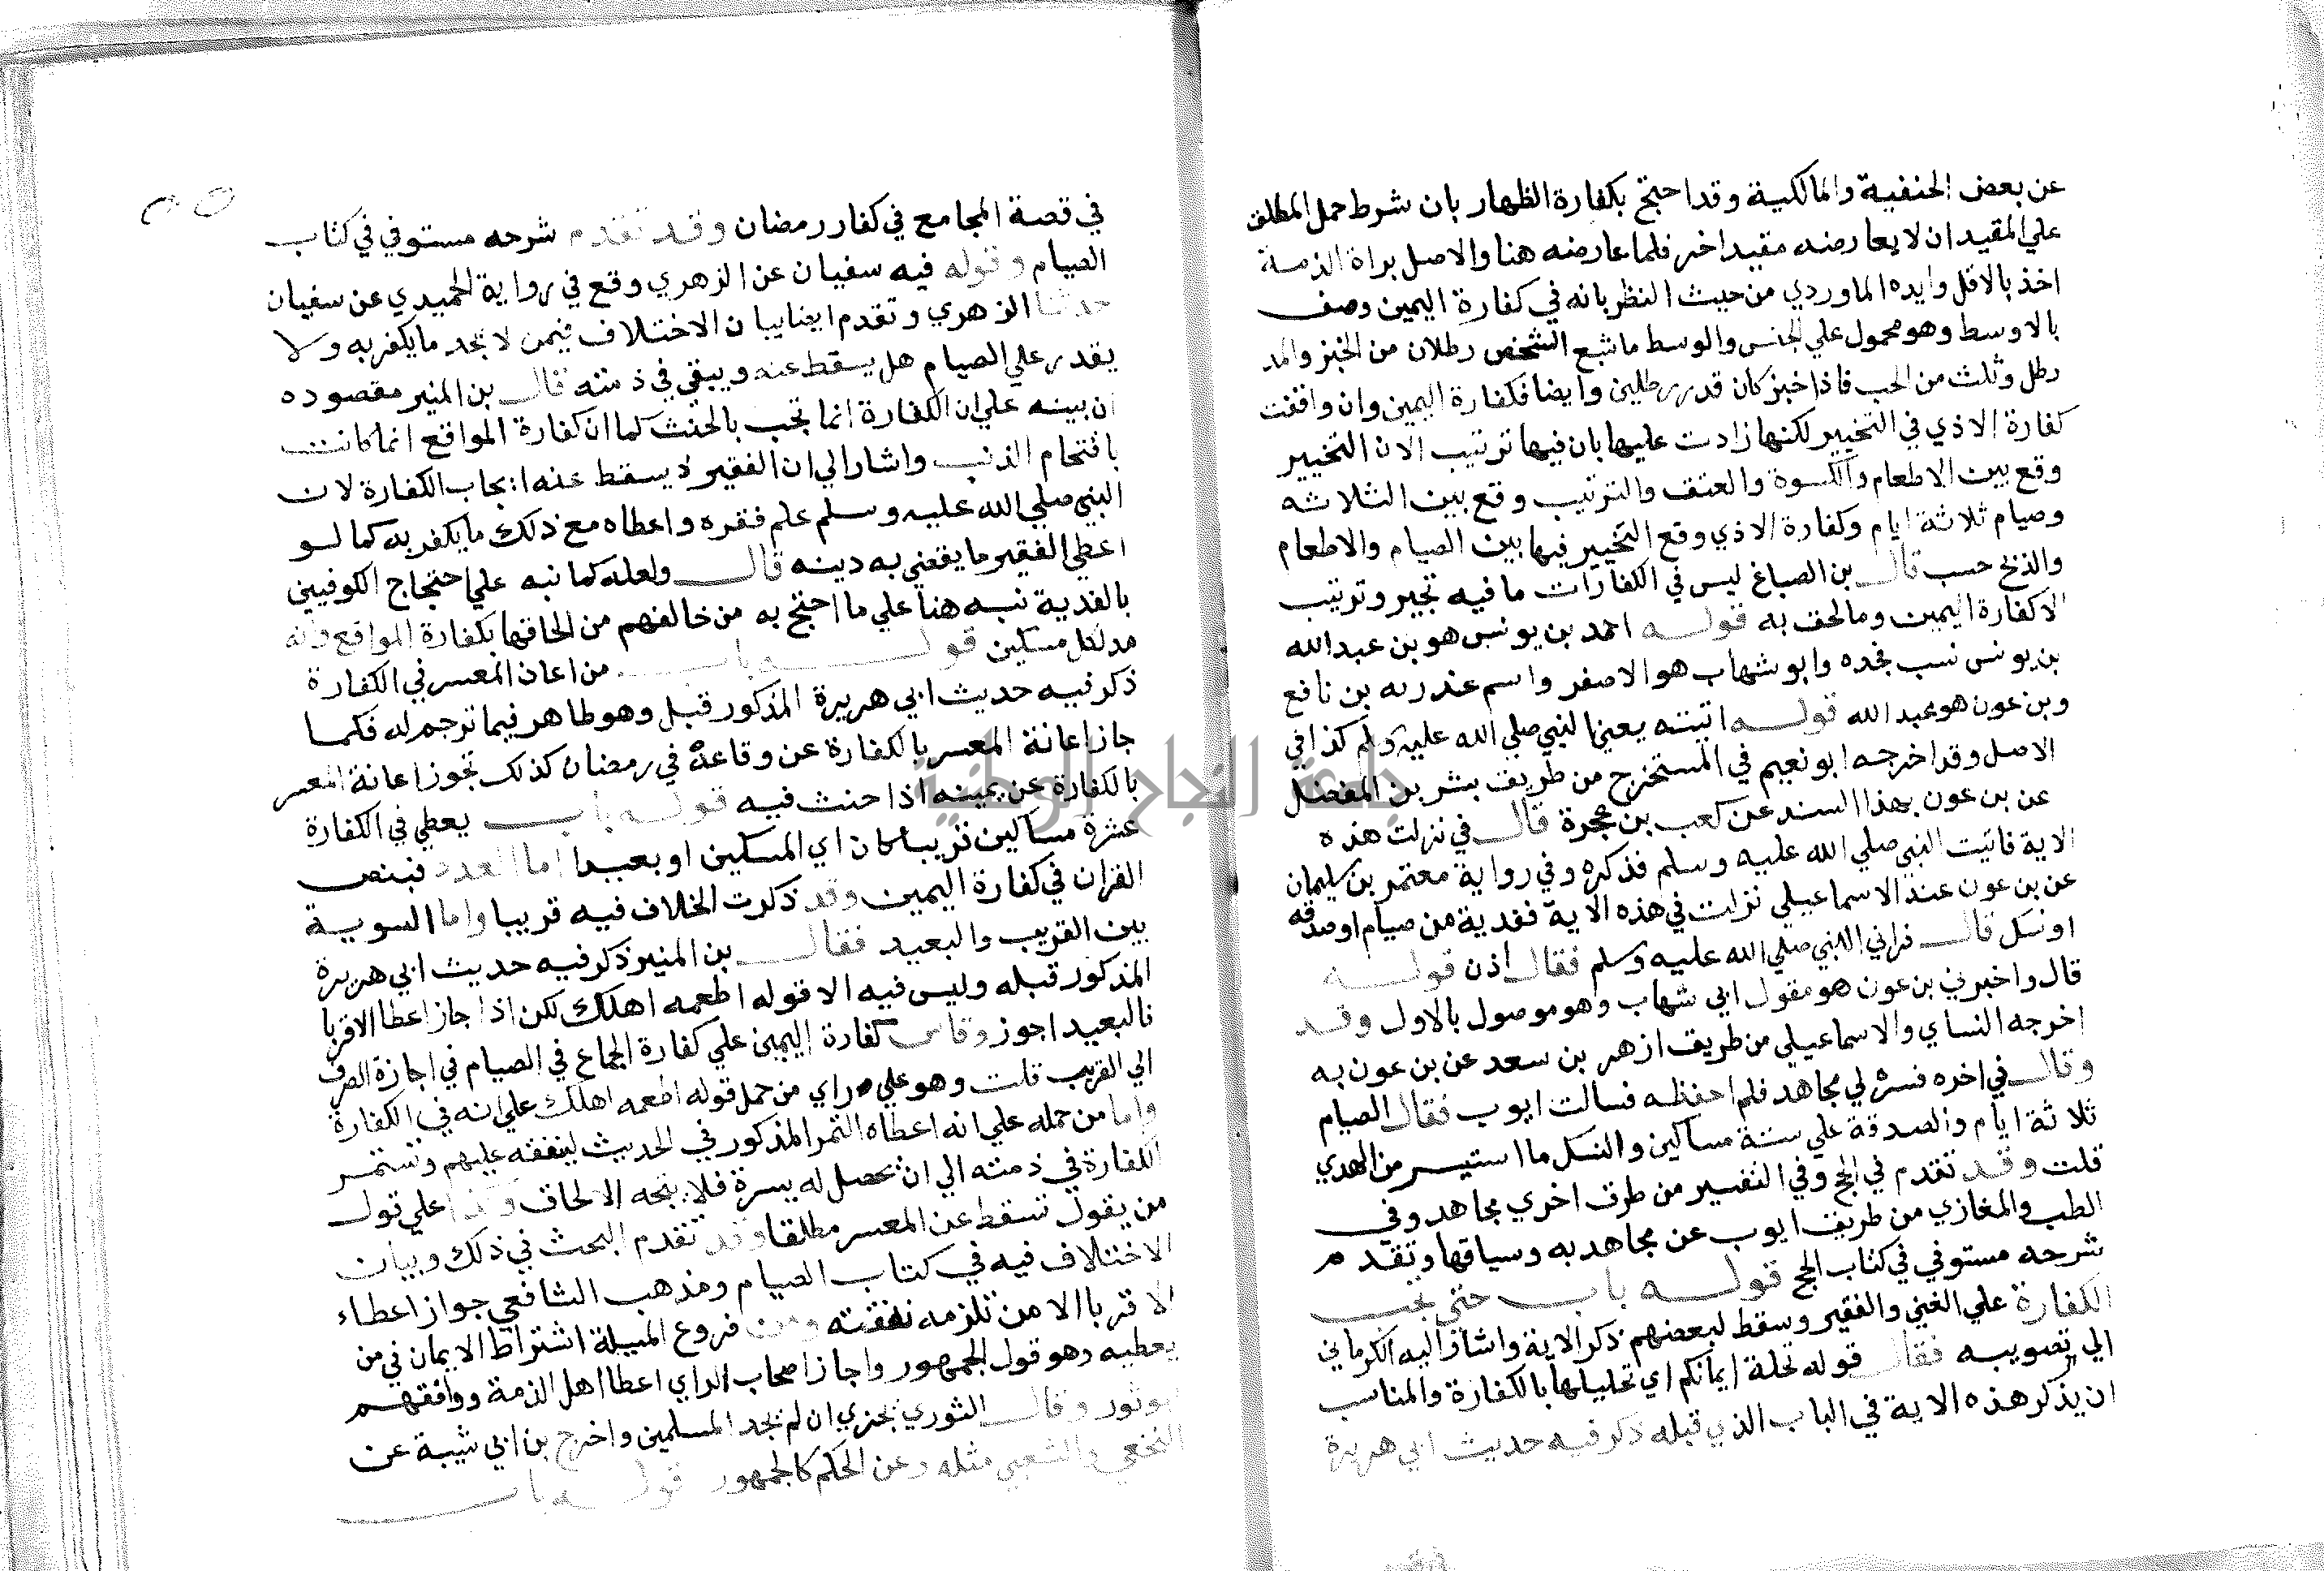 عن بعض الحنفية والمالكية وقد احتج بكفارة الظهار بان شرط حمل المطلق
علي المقيد ان لا يعارضه مقيد اخر فلما عارضه هنا والاصل براة الذمة
اخذ بالاقل وايده الماوردي من حيث النظر بانه في كفارة اليمين وصف
بالاوسط وهو محمول علي الجنس والوسط ما شبع الشخص رطلان من الخبز والمد
رطل وثلث من الحب فاذا خبز كان قدر رطلين وايضا فكفارة اليمين وان وافقت
كفارة الاذي في التخيير لكنها زادت عليها بان فيها ترتيب الان التخيير
وقع بين الاطعام والكسوة والعتق والترتيب وقع بين الثلاثة
وصيام ثلاثة ايام وكفارة الاذي وقع التخيير فيها بين الصيام والاطعام
والذبح حسب قال بن الصباغ ليس في الكفارات ما فيه تخيير وترتيب
الا كفارة اليمين وما لحق به قوله احمد بن يونس هو بن عبد الله
بن يونس نسب لجده وابو شهاب هو الاصغر واسم عبد ربه بن نافع
وبن عون هو عبد الله قوله اتيته يعني النبي صلي الله عليه وسلم كذا في
الاصل وقد اخرجه ابو نعيم في المستخرج من طريق بشر بن المفضل
عن بن عون بهذا السند عن كعب بن عجرة قال في نزلت هذه
الاية فاتيت النبي صلي الله عليه وسلم فذكره وفي رواية معتمر بن سليمان
عن بن عون عند الاسماعيلي نزلت في هذه الاية ففدية من صيام او صدقه
او نسك قال فراني النبي صلي الله عليه وسلم فقال اذن قوله
قال واخبرني بن عون هو مقول ابي شهاب وهو موصول بالاول وقد
اخرجه النساي والاسماعيلي من طريق ازهر بن سعد عن بن عون به
وقال في اخره فسره لي مجاهد فلم احفظه فسالت ايوب فقال الصيام
ثلاثة ايام والصدقة علي ستة مساكين والنسك ما استيسر من الهدي
قلت وقد تقدم في الحج وفي التفسير من طرق اخري مجاهد وفي
الطب والمغازي من طريق ايوب عن مجاهد به وسياقها وتقدم
شرحه مستوفي في كتاب الحج قوله باب حتي تجب
الكفارة علي الغني والفقير وسقط لبعضهم ذكر الاية واشار اليه الكرماني
الي تصويبه فقال قوله تحلة ايمانكم اي تحليلها بالكفارة والمناسب
ان يذكر هذه الاية في الباب الذي قبله ذكر فيه حديث ابي هريرة
في قصة المجامع في كفار رمضان وقد تقدم شرحه مستوفي في كتاب
الصيام وقوله فيه سفيان عن الزهري وقع في رواية الحميدي عن سفيان
حدثنا الزهري وتقدم ايضا بيان الاختلاف فيمن لا يجد ما يكفر به ولا
يقدر علي الصيام هل يسقط عنه ويبقي في ذمته قال بن المنير مقصوده
ان بينه علي ان الكفارة انما تجب بالحنث كما ان كفارة المواقع انما كانت
باقتحام الذنب واشار الي ان الفقير لا يسقط عنه ايجاب الكفارة لان
النبي صلي الله عليه وسلم علم فقره واعطاه مع ذلك ما يكفر به كما لو
اعطي الفقير ما يقضي به دينه قال ولعله كما نبه علي احتجاج الكوفيين
بالفدية نبه هنا علي ما احتج به من خالفهم من الحاقها بكفارة المواقع وانه
مد لكل مسكين قوله باب من اعان المعسر في الكفارة
ذكر فيه حديث ابي هريرة المذكور قبل وهو ظاهر فيما ترجم له فكما
جاز اعانة المعسر بالكفارة عن وقاعه في رمضان كذلك تجوز اعانة المعسر
بالكفارة عن يمينه اذا حنث فيه قوله باب يعطي في الكفارة
عشرة مساكين قريبا كان اي المسكين او بعيدا اما العدد فبنص
القران في كفارة اليمين وقد ذكرت الخلاف فيه قريبا واما السوية
بين القريب والبعيد فقال بن المنير ذكر فيه حديث ابي هريرة
المذكور قبله وليس فيه الا قوله اطعمه اهلك لكن اذا جاز اعطا الاقربا
فالبعيد اجوز وقاس كفارة اليمين علي كفارة الجماع في الصيام في اجازة الصرف
الي القريب قلت وهو علي راي من حمل قوله اطعمه اهلك علي انه في الكفارة
واما من حمله علي انه اعطاه التمر المذكور في الحديث لينفقه عليهم وتستمر
الكفارة في ذمته الي ان يحصل له يسرة فلا يتجه الالحاق وكذا علي قول
من يقول تسقط عن المعسر مطلقا وقد تقدم البحث في ذلك وبيان
الاختلاف فيه في كتاب الصيام ومذهب الشافعي جواز اعطاء
الاقربا الا من تلزمه نفقته ومن فروع المسيلة اشتراط الايمان في من
يعطيه وهو قول الجمهور واجاز اصحاب الراي اعطا اهل الذمة ووافقهم
ابو ثور وقال الثوري يجزي ان لم يجد المسلمين واخرج بن ابي شيبة عن
النخعي والشعبي مثله وعن الحكم كالجمهور قوله باب
جامعة النجاح الوطنية